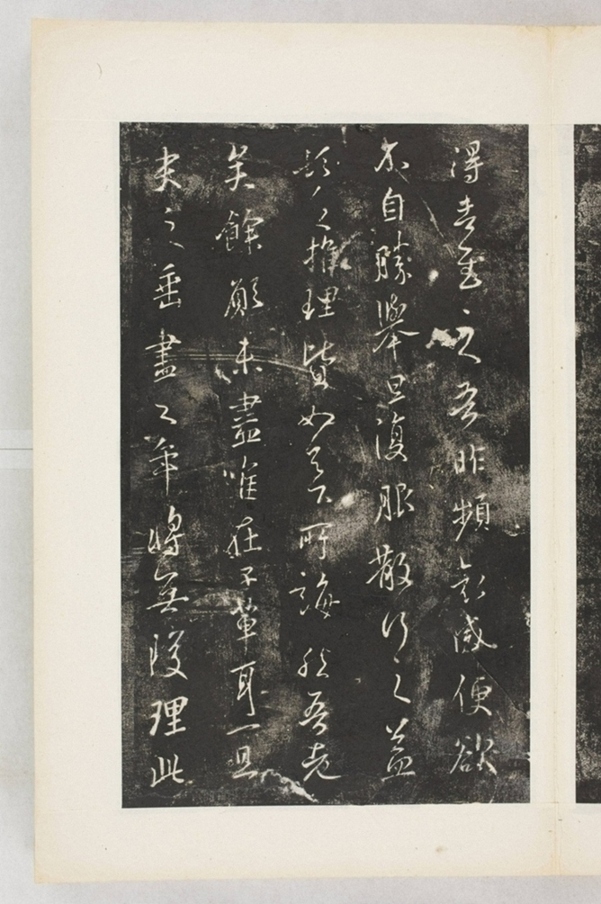 得書至吾昨頻哀感便欲
不自勝舉旦復服散行之益
頓乏推理皆如足下所誨然吾老
矣餘願未盡唯在子輩耳一旦
哭之垂盡之年將無復理此